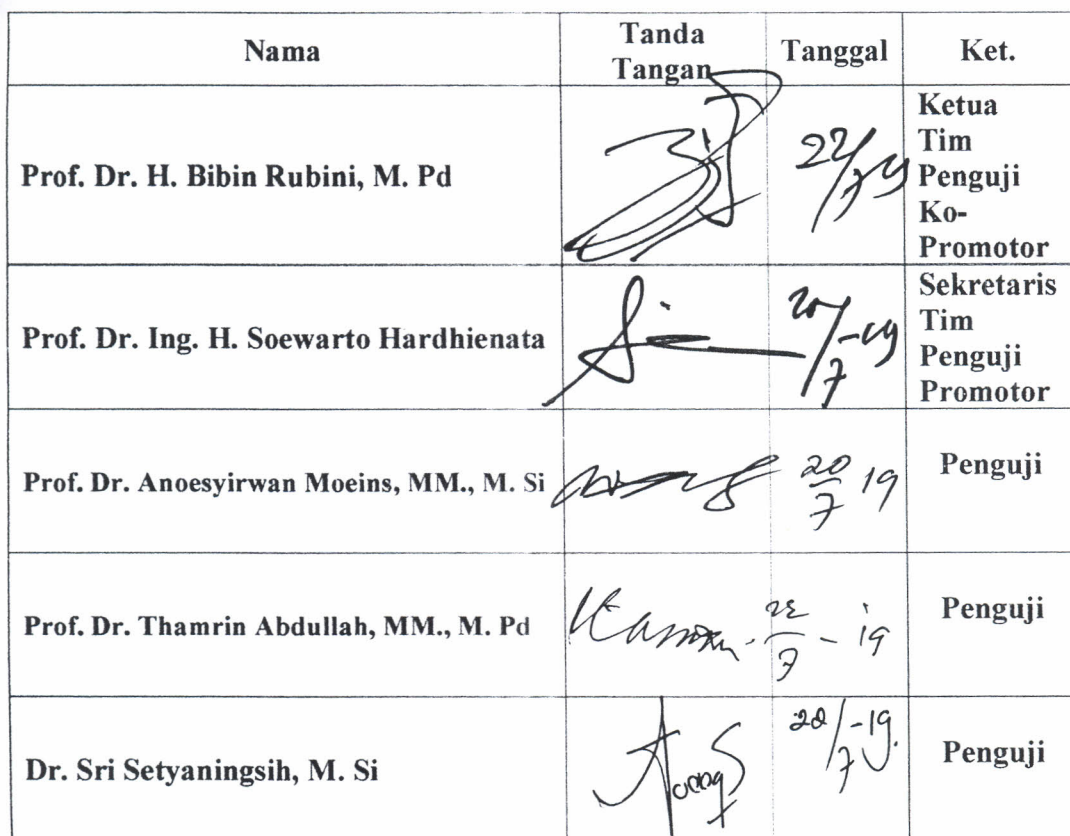 Nama
Tanda
Tangan
Tanggal
Ket.
Prof. Dr. H. Bibin Rubini, M. Pd
22/7 19
Ketua
Tim
Penguji
Ko-
Promotor
Prof. Dr. Ing. H. Soewarto Hardhienata
/7 -19
Sekretaris
Tim
Penguji
Promotor
Prof. Dr. Anoesyirwan Moeins, MM., M. Si
20/7 19
Penguji
Prof. Dr. Thamrin Abdullah, MM., M. Pd
/7 - 19
Penguji
Dr. Sri Setyaningsih, M. Si
/7 -19.
Penguji